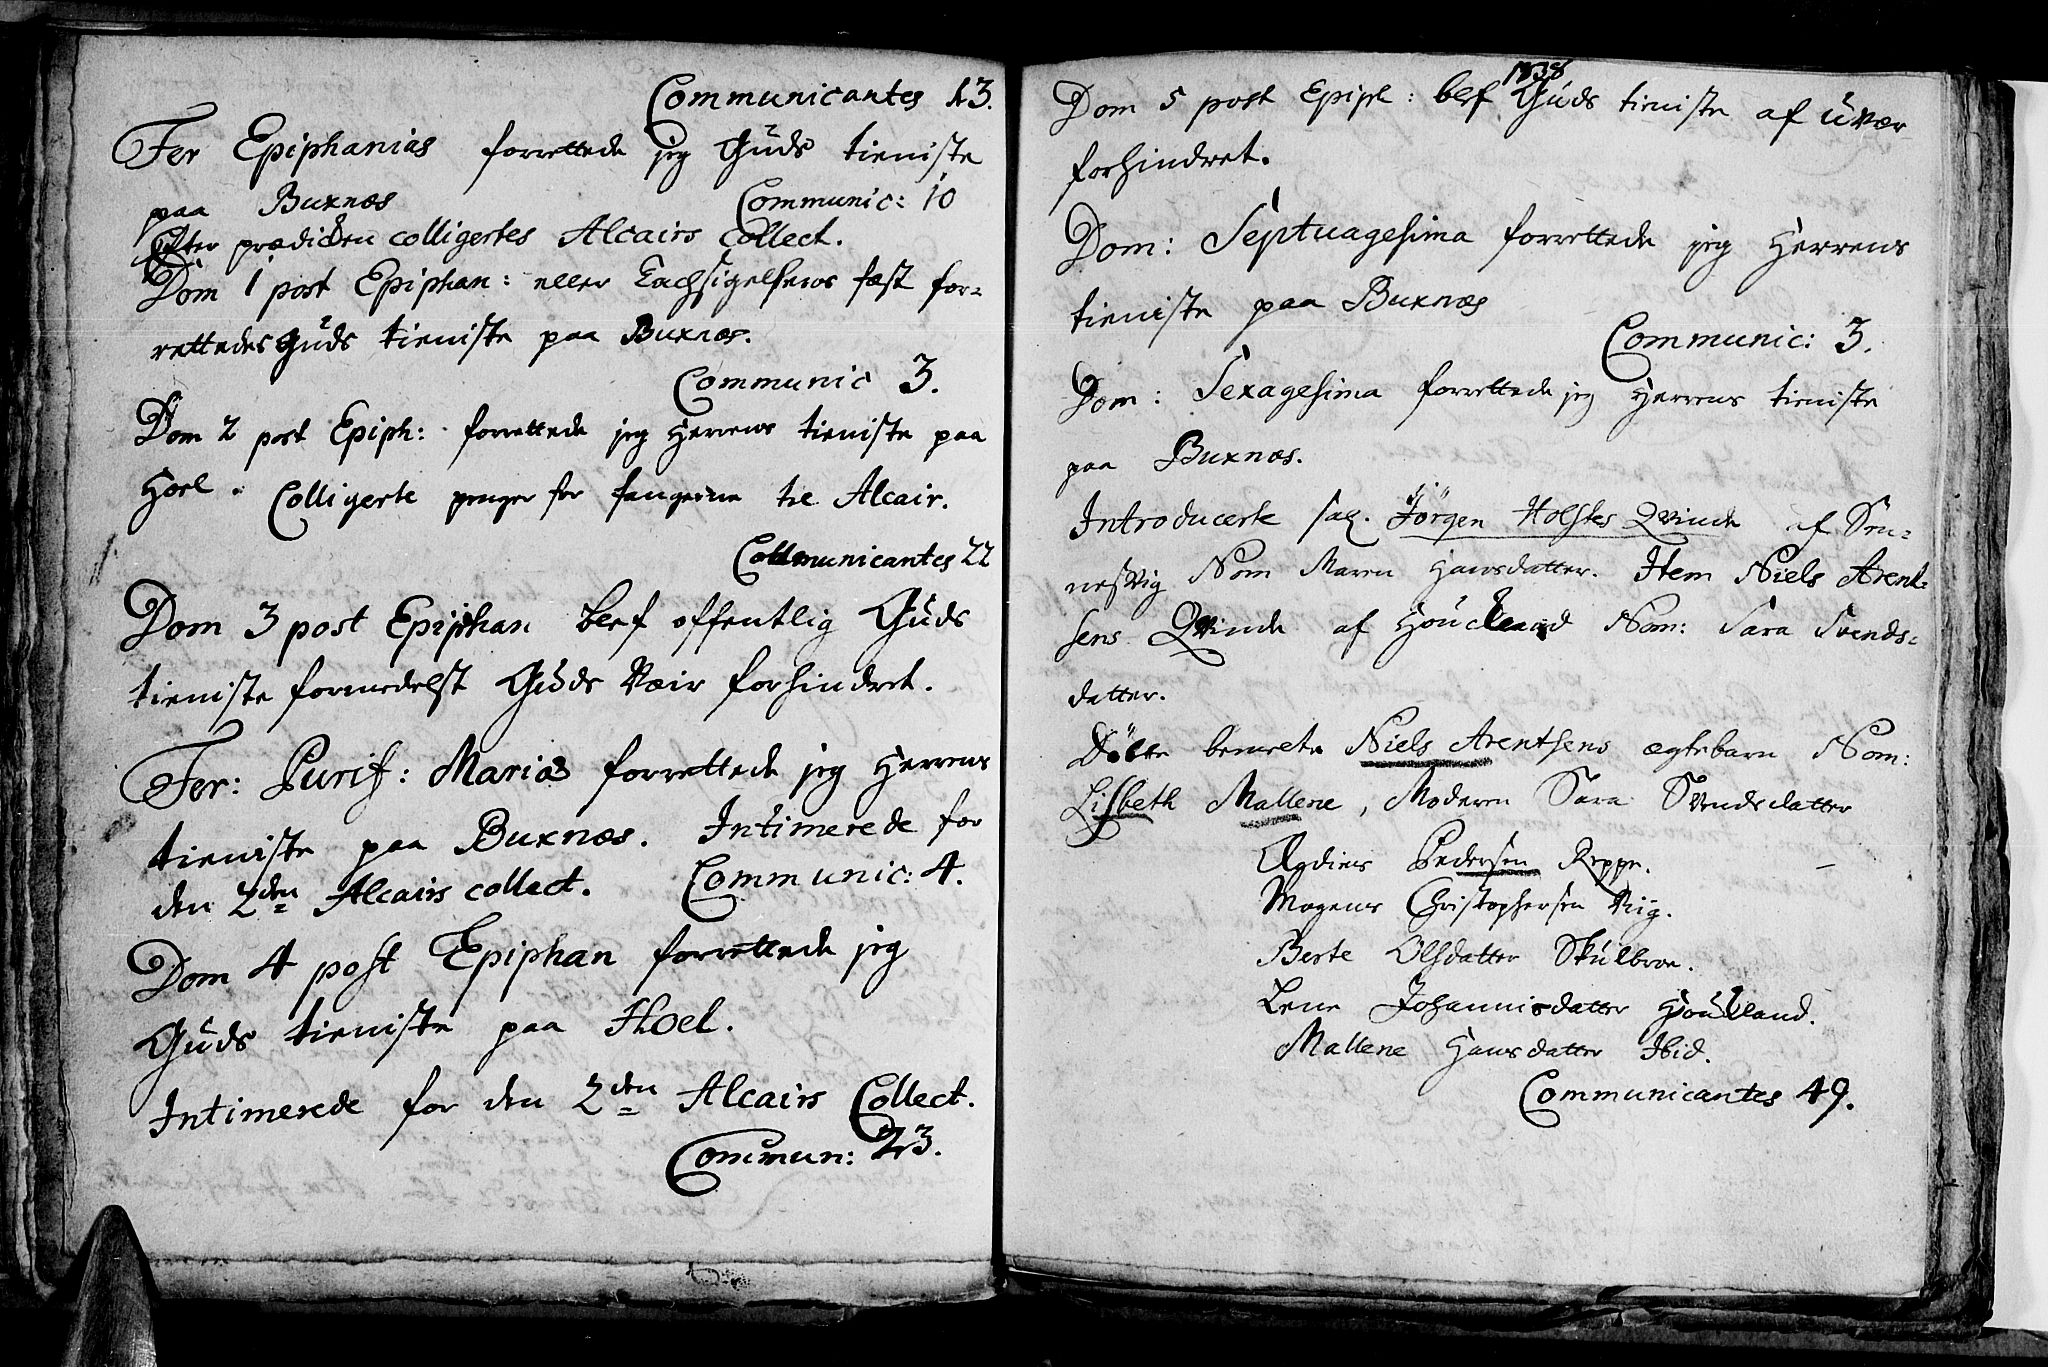 Communicantes 13.
Fer Epiphanias forrettede jeg Guds tieniste
paa Buxnæs Communic: 10
Efter prædicken colligertes Alcairs Collect.
Dom 1 post Epiphan: eller Tachsigelsens fæst for-
rettedes Guds tieniste paa Buxnæs.
Communic 3.
Dom 2 post Epiph: forrettede jeg Herrens tieniste paa
Hoel. Colligerte penger for fangerne til Alcair.
Communicantes 22
Dom 3 post Epiphan blef offentlig Guds
tieniste formedelst Guds Væir forhindret.
Fer: Purif: Mariæ forrettede jeg Herrens
tieniste paa Buxnæs. Intimerede for
den 2den Alcairs collect. Communic: 4.
Dom 4 post Epiphan forrettede jeg
Guds tieniste paa Hoel.
Intimerede for den 2den Alcairs Collect.
Commun: 23.
Dom 5 post Epiph: blef Guds tieniste af uvær
forhindret.
Dom: Septuagesima forrettede jeg Herrens
tieniste paa Buxnæs
Communic: 3.
Dom: Sexagesima forrettede jeg Herrens tieniste
paa Buxnæs.
Introducerte sal. Jörgen Holstes Qvinde af Sen-
nesvig Nom Maren Hansdatter. Item Niels Arent-
sens Qvinde af Houcland Nom: Sara Svends-
datter.
Döbte bemelte Niels Arentsens ægtebarn Nom:
Lisbeth Mallene, Moderen Sara Svendsdatter
Pedersen Reppe.
Mogens Christophersen Viig.
Berte Olsdatter Skulbroe.
Lene Johannisdatter Houcland.
Mallene Hansdatter Ibid.
Communicantes 49.